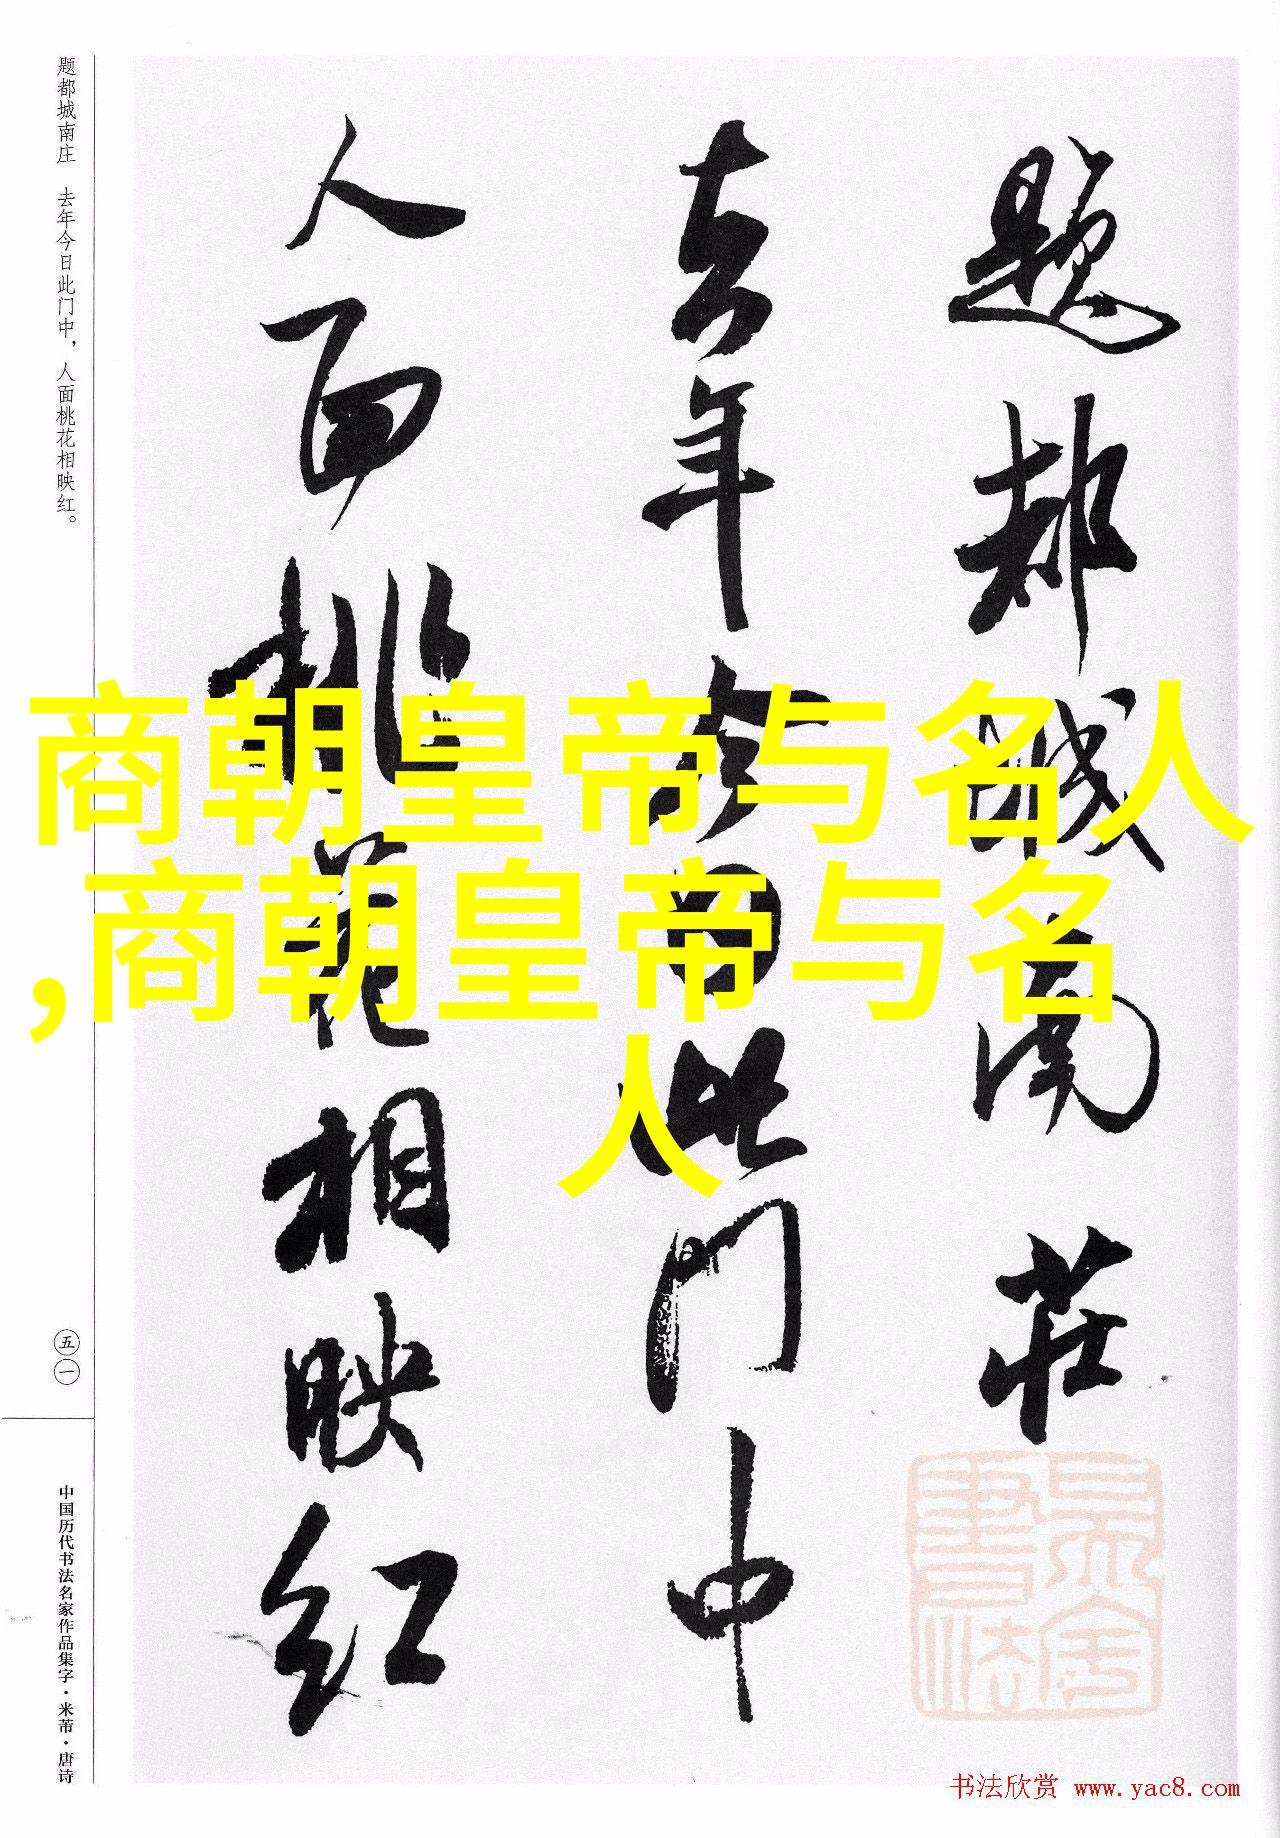 题都城南莊
去年今日此门中
人面桃花相映红
题都城南庄 去年今日此门中，人面桃花相映红。
五一
中国历代书法名家作品集字·米芾·唐诗
商朝皇帝与名人
,商朝皇帝与名
人
书法欣赏 www.yac8.com